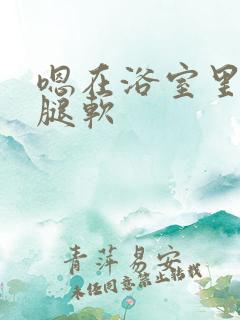 嗯在浴室里
腿软
青萍易安
未经同意禁止转载